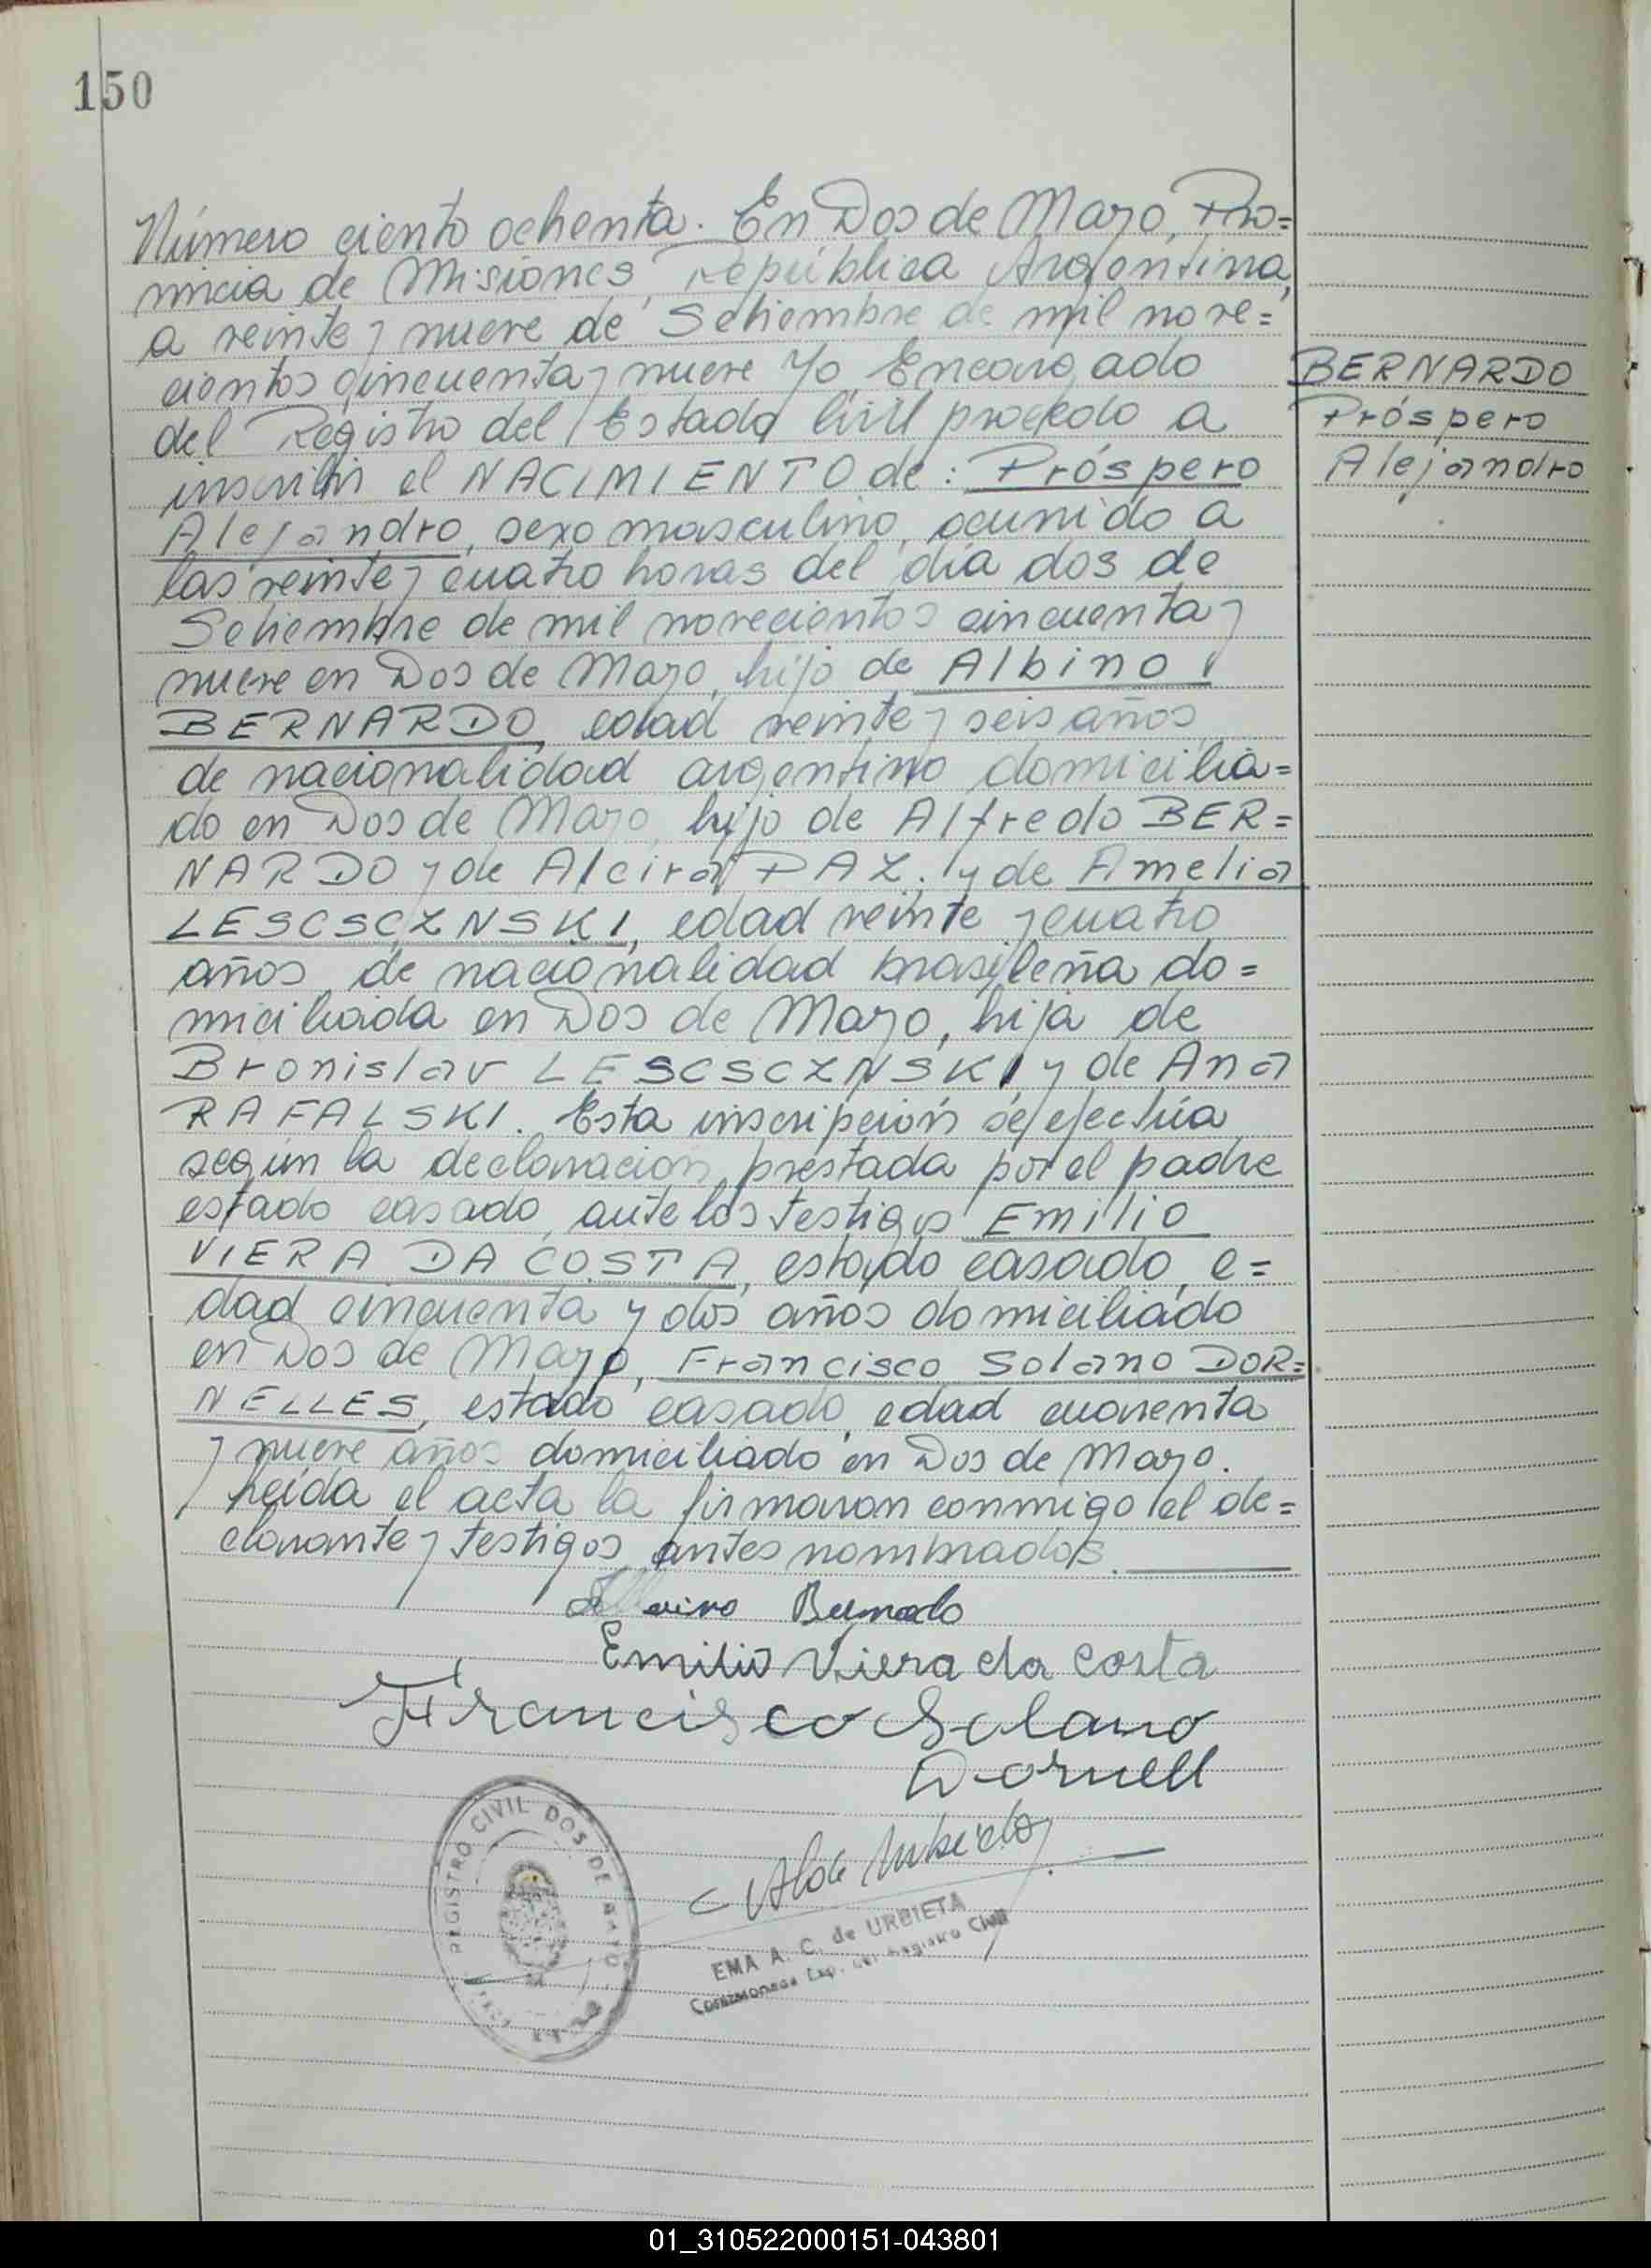 150
Número ciento ochenta. En Dos de Mayo, Pro=
vincia de Misiones, República Argentina,
a veinte y nueve de Setiembre de mil nove=
cientos cincuenta y nueve Yo Encargado
del Registro del Estado Civil procedo a
inscribir el NACIMIENTO de: Próspero
Alejandro, sexo masculino, ocurrido a
las veinte y cuatro horas del día dos de
Setiembre de mil novecientos cincuenta y
nueve en Dos de Mayo, hijo de Albino
BERNARDO, edad veinte y seis años
de nacionalidad argentino domicilia=
do en Dos de Mayo, hijo de Alfredo BER=
NARDO y de Alcira PAZ. y de Amelia
LESCSCZNSKI, edad veinte y cuatro
años, de nacionalidad brasileña do=
miciliada en Dos de Mayo, hija de
Bronislav LESCSCZNSKI y de Ana
RAFALSKI. Esta inscripción se efectúa
según la declaración prestada por el padre
estado casado, ante los testigos Emilio
VIERA DA COSTA, estado casado, e=
dad cincuenta y dos años domiciliado
en Dos de Mayo, Francisco Solano DOR=
NELLES, estado casado, edad cuarenta
y nueve años domiciliado en Dos de Mayo.
Leída el acta la firmaron conmigo el de=
clarante y testigos antes nombrados.
BERNARDO
Próspero
Alejandro
Bernardo
Emilio Viera da Costa
Francisco Solano
Dornell
REGISTRO CIVIL DOS DE MAYO
EMA A. C. de URBIETA
Registro Civil
01_310522000151-043801